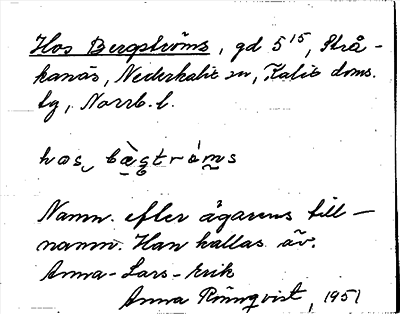 Hos Bergströms, gd 5¹⁵, Strå-
kanäs, Nederkalix sn, Kalix doms.
lg, Norrb. l.
hos bæ̀gstrǿms
Namn. efter ägarens till-
namn. Han kallas äv.
Anna-Lars-Erik
Anna Rönnqvist, 1951